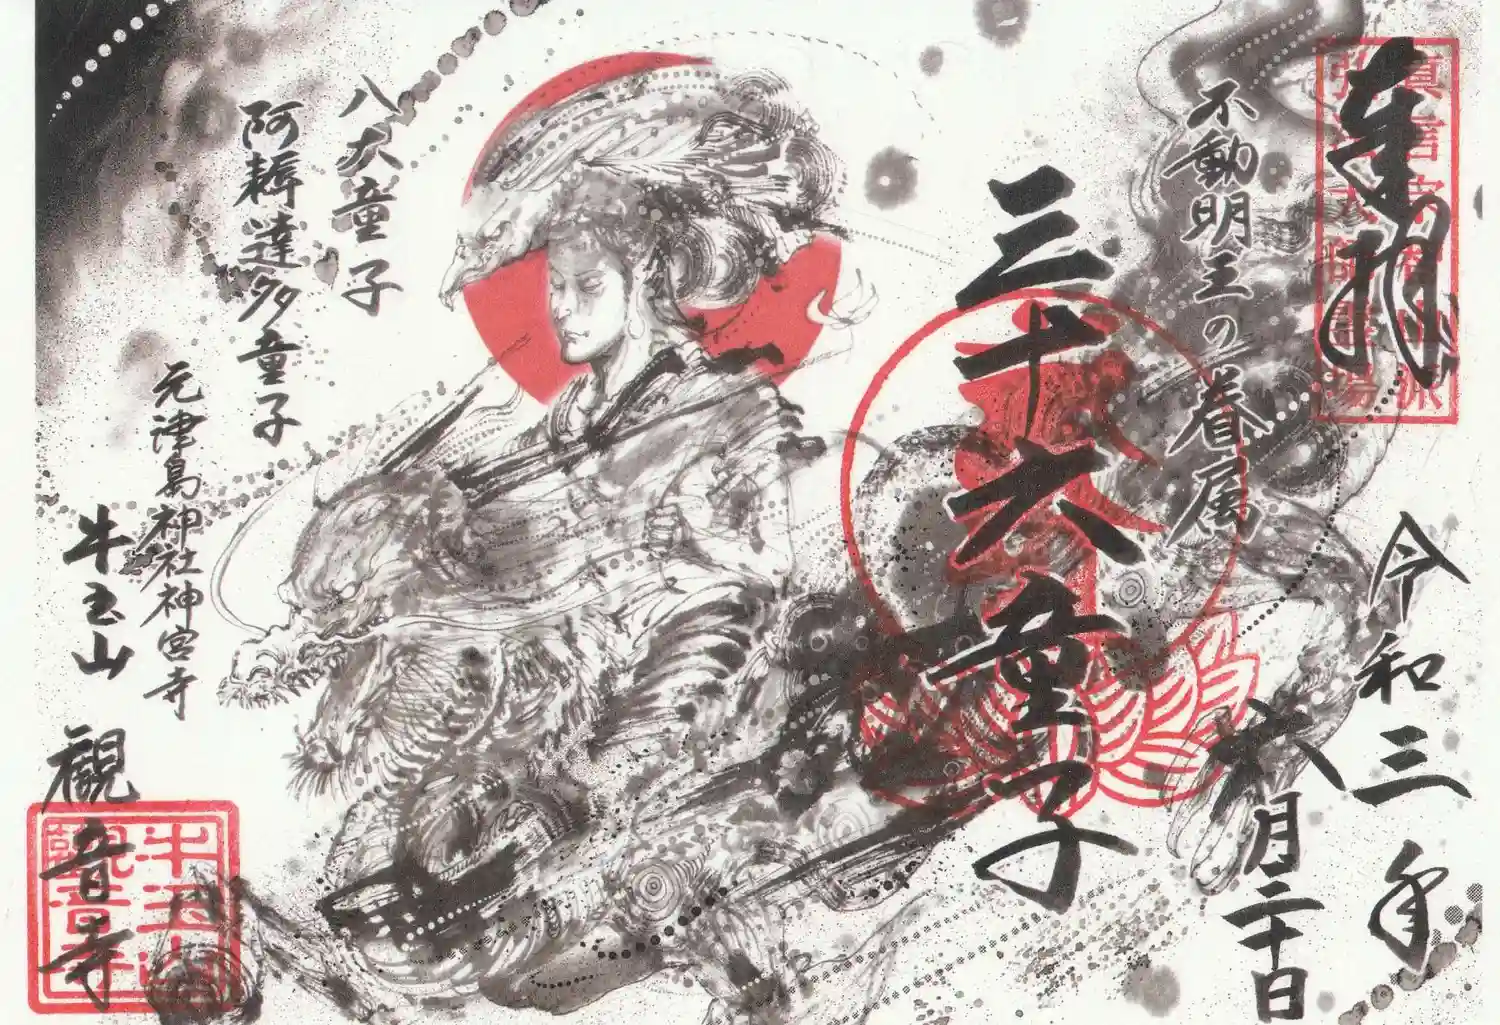 奉拝
真言宗智山派
弘法大師霊場
令和三年
六月二十日
不動明王の眷属
三十六童子
八大童子
阿耨達多童子
元津島神社神宮寺
牛玉山
観音寺
牛玉山
観音寺